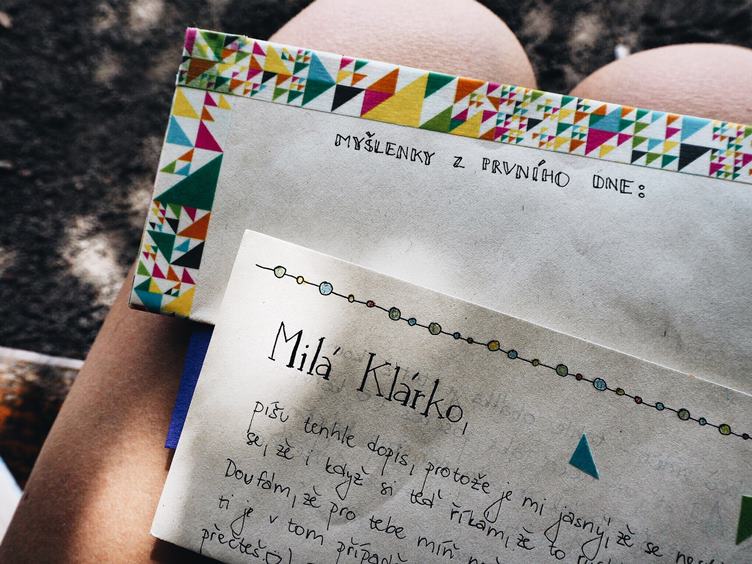 MYŠLENKY Z PRVNÍHO DNE:
Milá Klárko,
píšu tenhle dopis, protože je mi jasný, že se
se, že i když si teď říkám, že to
Doufám, že pro tebe míň
ti je v tom případě
přečteš.